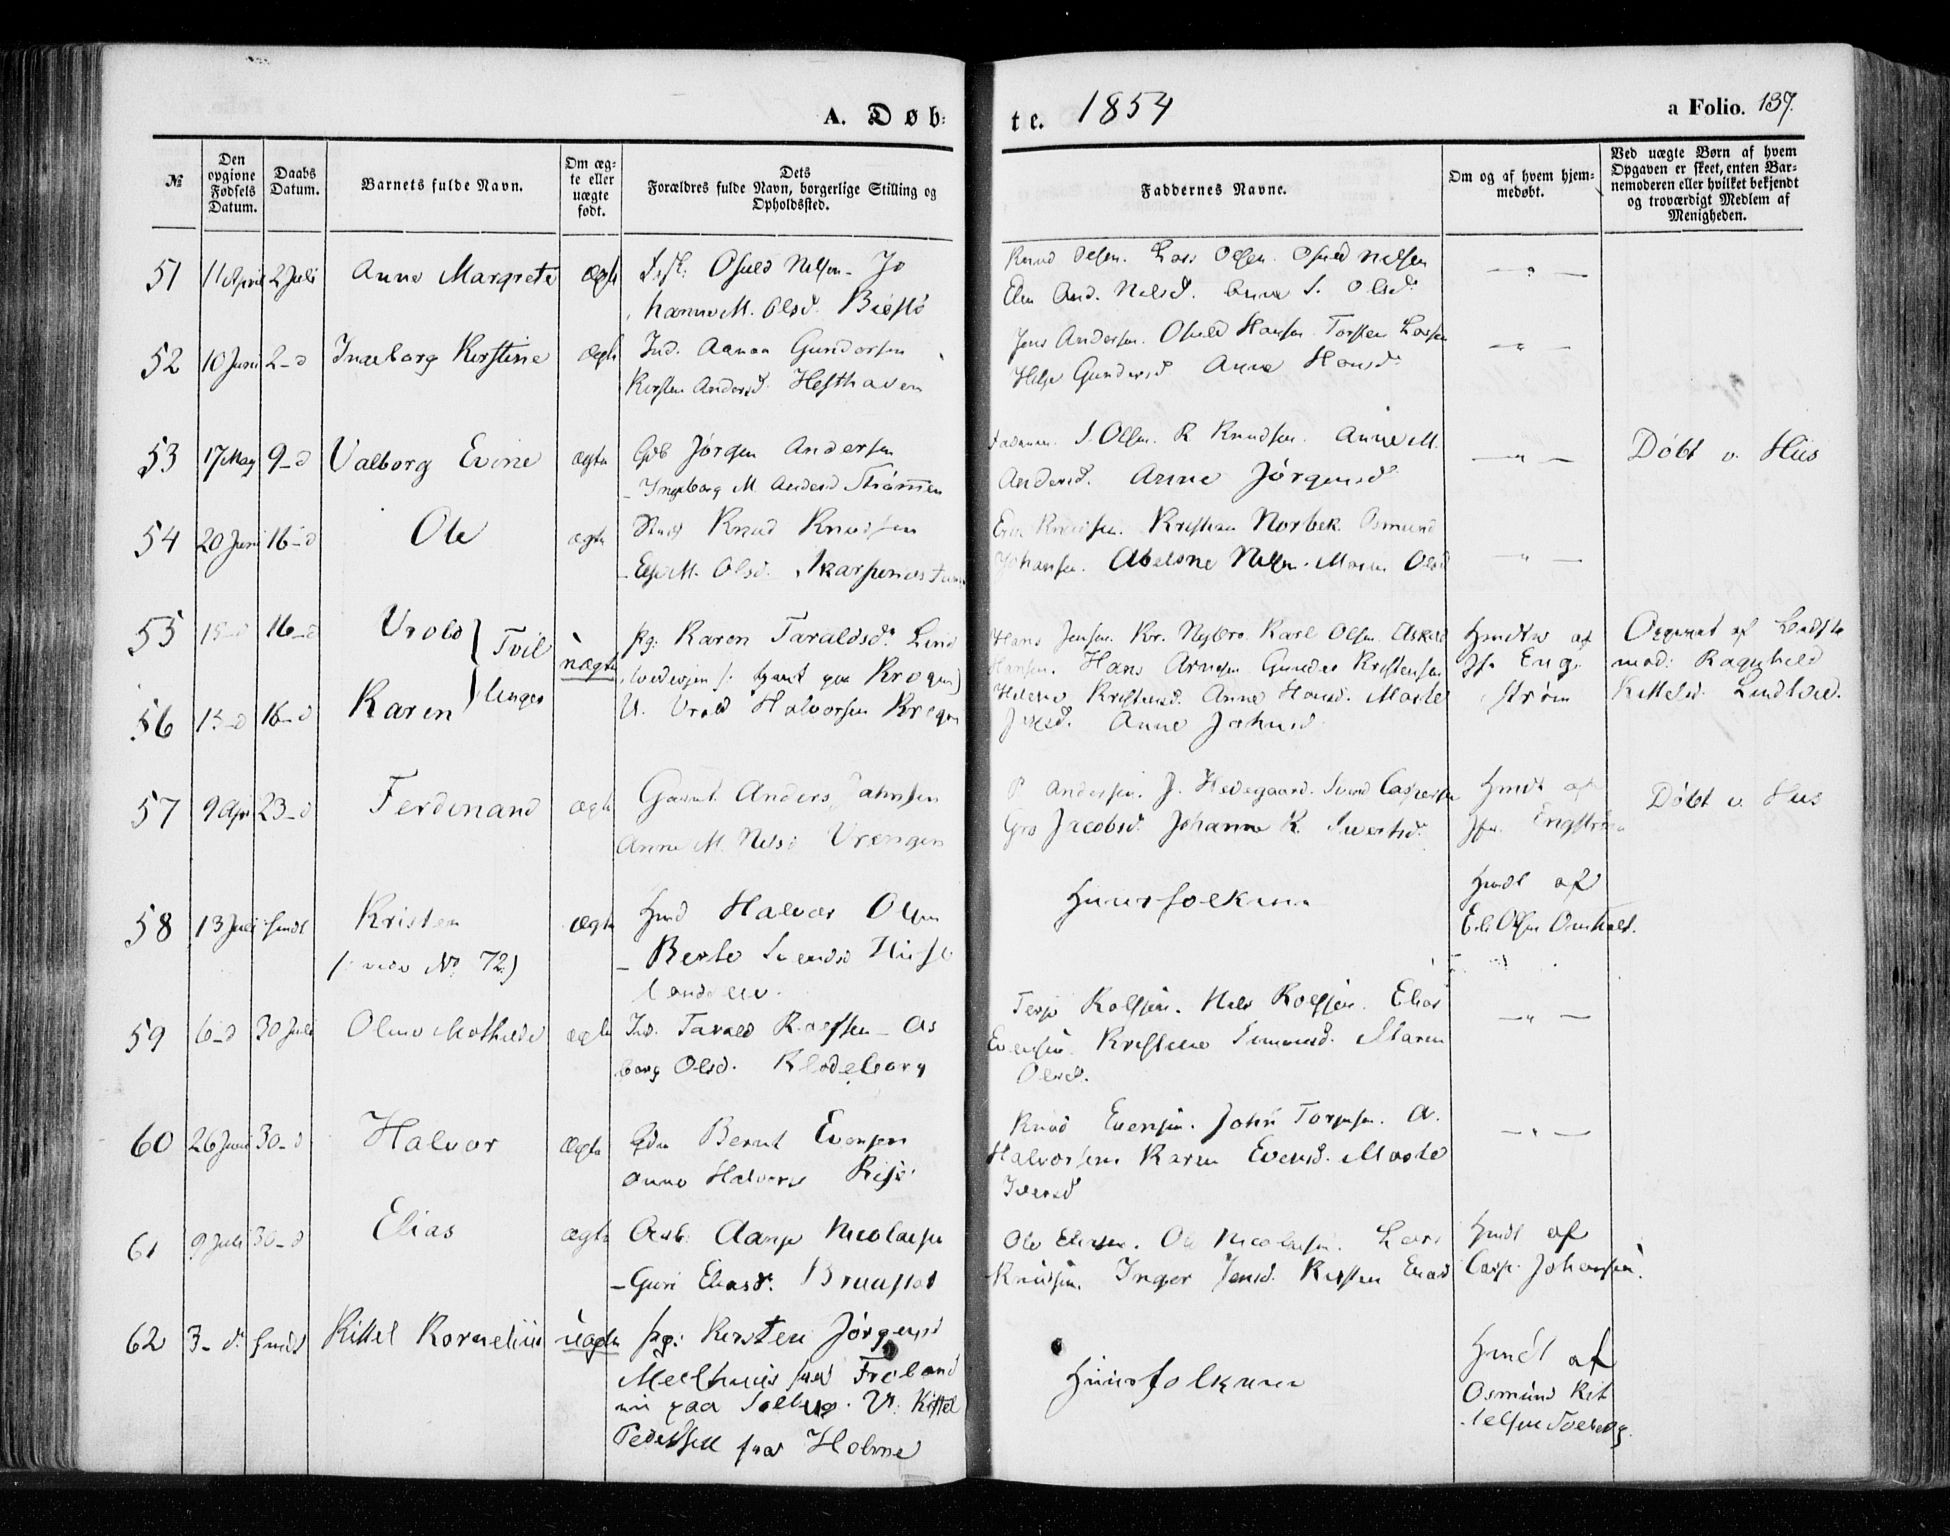 A. Døb:
te. 1854
a Folio. 137.
№
Den opgivne Fødsels Datum.
Daabs Datum.
Barnets fulde Navn.
Om ægte eller uægte født.
Dets Forældres fulde Navn, borgerlige Stilling og Opholdssted.
Faddernes Navne.
Om og af hvem hjemmedøbt.
Ved uægte Børn af hvem Opgaven er skeet, enten Barnemoderen eller hvilket bekjendt og troværdigt Medlem af Menigheden.
51 11 April 2 Juli Anne Margrete ægte Osuld Nelsen - Jo
hanne M. Olsd.
Knud Olsen. Lars Olsen. Osuld Nelsen
And. Nelsd. Anne S. Olsd.
52 10 Juni 2-d Ingeborg Kirstine ægte Ind. Aanon Gundersen
Kirsten Andersd. Hesthaven
Jens Andersen. Osuld Hansen. Torsten Larsen
Helje Gundersd. Anne Hansd.
53 17 May 9-d Valborg Evine ægte Gdb Jørgen Andersen
- Ingeborg M Andersd Strömmen
S. Olsen. R Knudsen. Anne M.
Andersd. Anne Jørgensd.
Döbt v. Hus
54 20 Juni 16-d Ole ægte Knud Knudsen
- Else M. Olsd.
Knudsen. Kristian Norbek. Osmund
Johansen. Abelone Nelsen. Maren Olsd
55 15-d 16-d Urold
Tvil
linger
uægte
Pg: Karen Taraldsd. Lind
Krogen)
56 15-d 16-d Karen
U. Urold Halvorsen Krogen
Hans Jensen. Kr. Nybro. Karl Olsen. Askild
Hansen. Hans Arnesen. Gunder Kristensen
Helene Kristensd. Anne Hansd. Marte
Jensd. Anne Johnsd.
Hmdte af
Jfr Eng-
strøm
Opgivet af
mod: Ragnhild
Kittelsd. Lindtved.
57 9 Apr 23-d Ferdinand ægte Anders Jahnsen
Anne M. Nelsd Vrengen
P Andersen. J. Hedegaard. Svend Caspersen
Gro Jacobsd. Johanne K. Sivertsd.
Hmdt af
Jfr. Engstrøm
Döbt v. Hus
58 13 Juli hmdt Kristen
(: vide No. 72.)
ægte Hmd Halvor Olsen
- Berte Svendsd
Huusfolkene
Hmdt af
Olsen Omholt.
59 6-d 30 Juli Oline Mathilde ægte Ind. Tarald Roefsen - As
borg Olsd. Klodeborg
Terje Rolfsen. Nils Rolfsen. Elias
Evensen. Kristine Simonsd. Maren
Olsd.
60 26 Juni 30-d Halvor ægte Gdm Bernt Evensen
Anne Halvorsd
Knud Evensen. John Torgesen. A.
Halvorsen. Karen Evensd. Marte
Iversd
61 9 Juli 30-d Elias ægte Aanje Nicolaisen
- Guri Eliasd. Bruustad
Ole Eliassen. Ole Nicolaisen. Lars
Knudsen. Inger Jensd. Kirsten
Hmdt af
Casp. Johansen.
62 3-d. hmdt Kittel Kornelius uægte Pg: Kirsten Jørgensd
Froland
nu paa Solberg. U. Kittel
Pedersen fra Holme
Huusfolkene
Hmdt af
Osmund Kit
telsen Solberg.